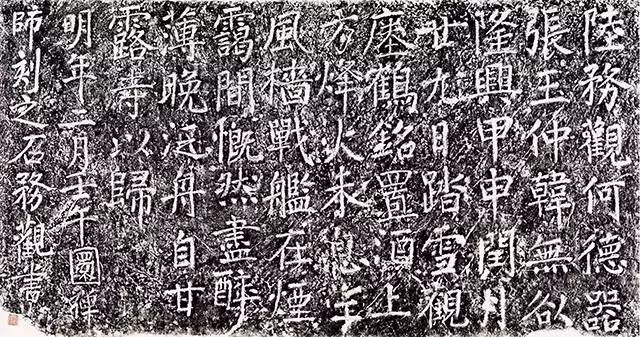 陸務觀何德器
張玉仲韓無咎
隆興甲申閏月
廿九日踏雪觀
瘞鶴銘置酒上
方烽火未息望
風檣戰艦在煙
靄間慨然盡醉
薄晚泛舟自甘
露寺以歸
明年二月壬午圜禪
師刻之石務觀書